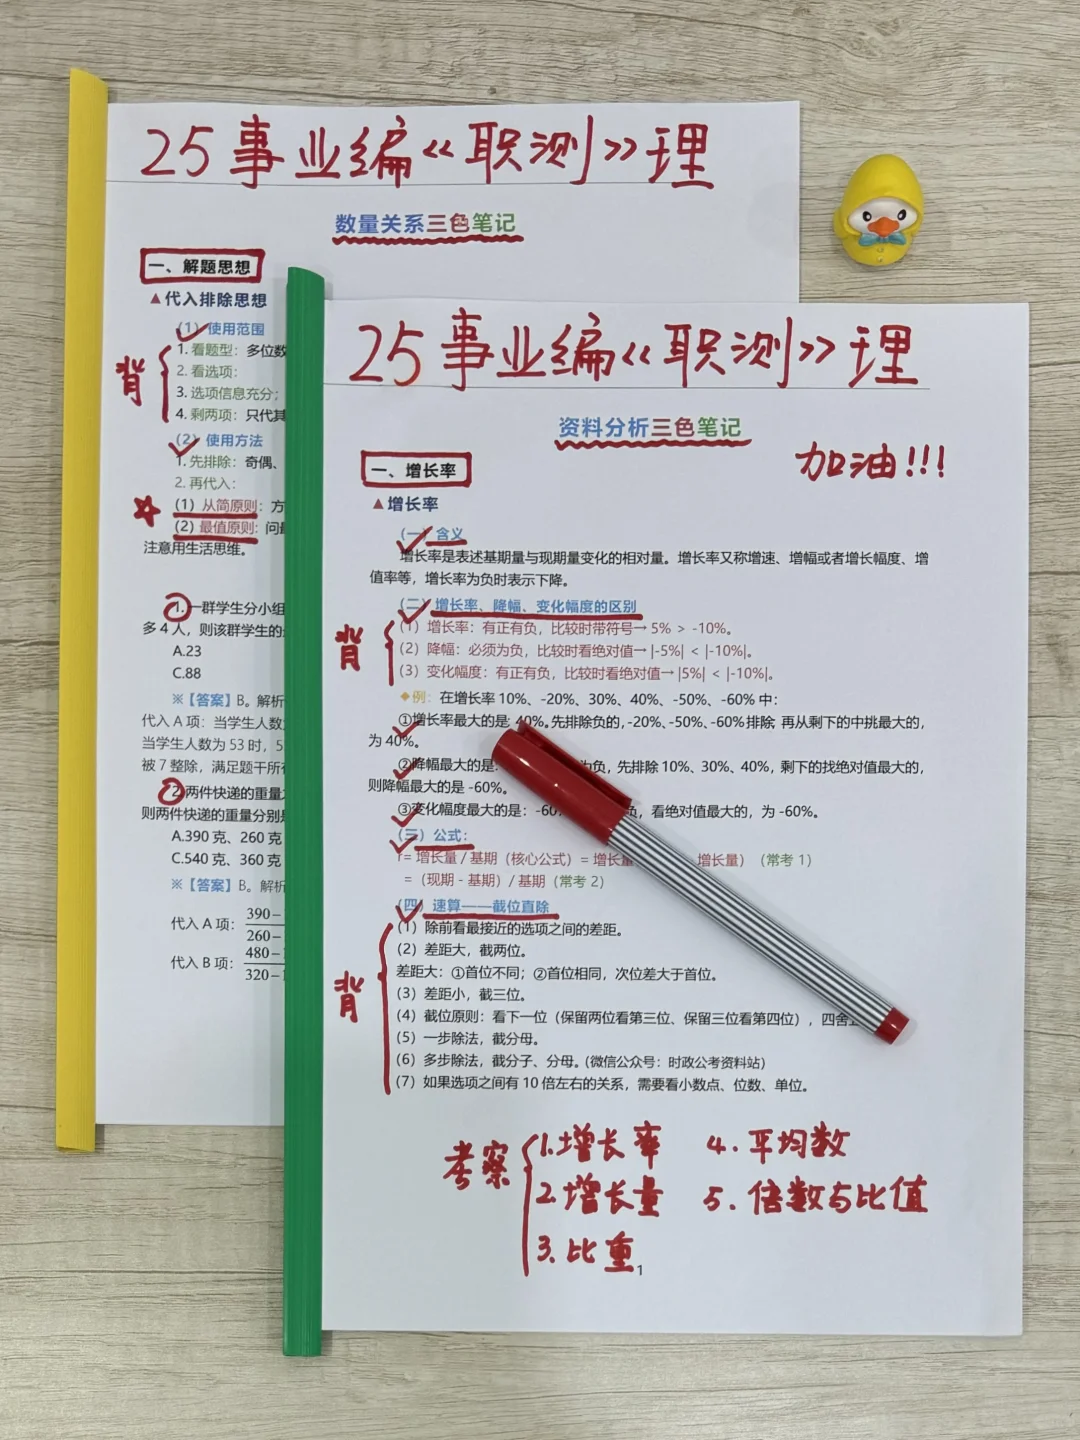 25事业编《职测》理
数量关系三色笔记
一、解题思想
▲代入排除思想
(1) 使用范围
背
1. 看题型：多位数
2. 看选项：
3. 选项信息充分；
4. 剩两项：只代其
(2) 使用方法
1. 先排除：奇偶、
2. 再代入：
(1) 从简原则：方
(2) 最值原则：问最
注意用生活思维。
1. 一群学生分小组
多 4 人，则该群学生的
A.23
C.88
※【答案】B。解析
代入 A 项：当学生人数
当学生人数为 53 时，5
被 7 整除，满足题干所
2. 两件快递的重量
则两件快递的重量分别是
A.390 克、260 克
C.540 克、360 克
※【答案】B。解析
代入 A 项：390-
260-
代入 B 项：480-
320-
25事业编《职测》理
资料分析三色笔记
加油!!!
一、增长率
▲增长率
(一) 含义
增长率是表述基期量与现期量变化的相对量。增长率又称增速、增幅或者增长幅度、增
值率等，增长率为负时表示下降。
(二) 增长率、降幅、变化幅度的区别
背
(1) 增长率：有正有负，比较时带符号→ 5% > -10%。
(2) 降幅：必须为负，比较时看绝对值→ |-5%| < |-10%|。
(3) 变化幅度：有正有负，比较时看绝对值→ |5%| < |-10%|。
◆例：在增长率 10%、-20%、30%、40%、-50%、-60% 中：
①增长率最大的是 40%。先排除负的，-20%、-50%、-60% 排除 再从剩下的中挑最大的，
为 40%。
②降幅最大的是：为负，先排除 10%、30%、40%，剩下的找绝对值最大的，
则降幅最大的是 -60%。
③变化幅度最大的是：-60 负，看绝对值最大的，为 -60%。
(三) 公式：
r= 增长量 / 基期（核心公式）= 增长量 增长量）（常考 1）
=（现期 - 基期）/ 基期（常考 2）
(四) 速算——截位直除
背
(1) 除前看最接近的选项之间的差距。
(2) 差距大，截两位。
差距大：①首位不同；②首位相同，次位差大于首位。
(3) 差距小，截三位。
(4) 截位原则：看下一位（保留两位看第三位、保留三位看第四位），四舍
(5) 一步除法，截分母。
(6) 多步除法，截分子、分母。（微信公众号：时政公考资料站）
(7) 如果选项之间有 10 倍左右的关系，需要看小数点、位数、单位。
考察
1.增长率 4.平均数
2.增长量 5.倍数与比值
3.比重
1